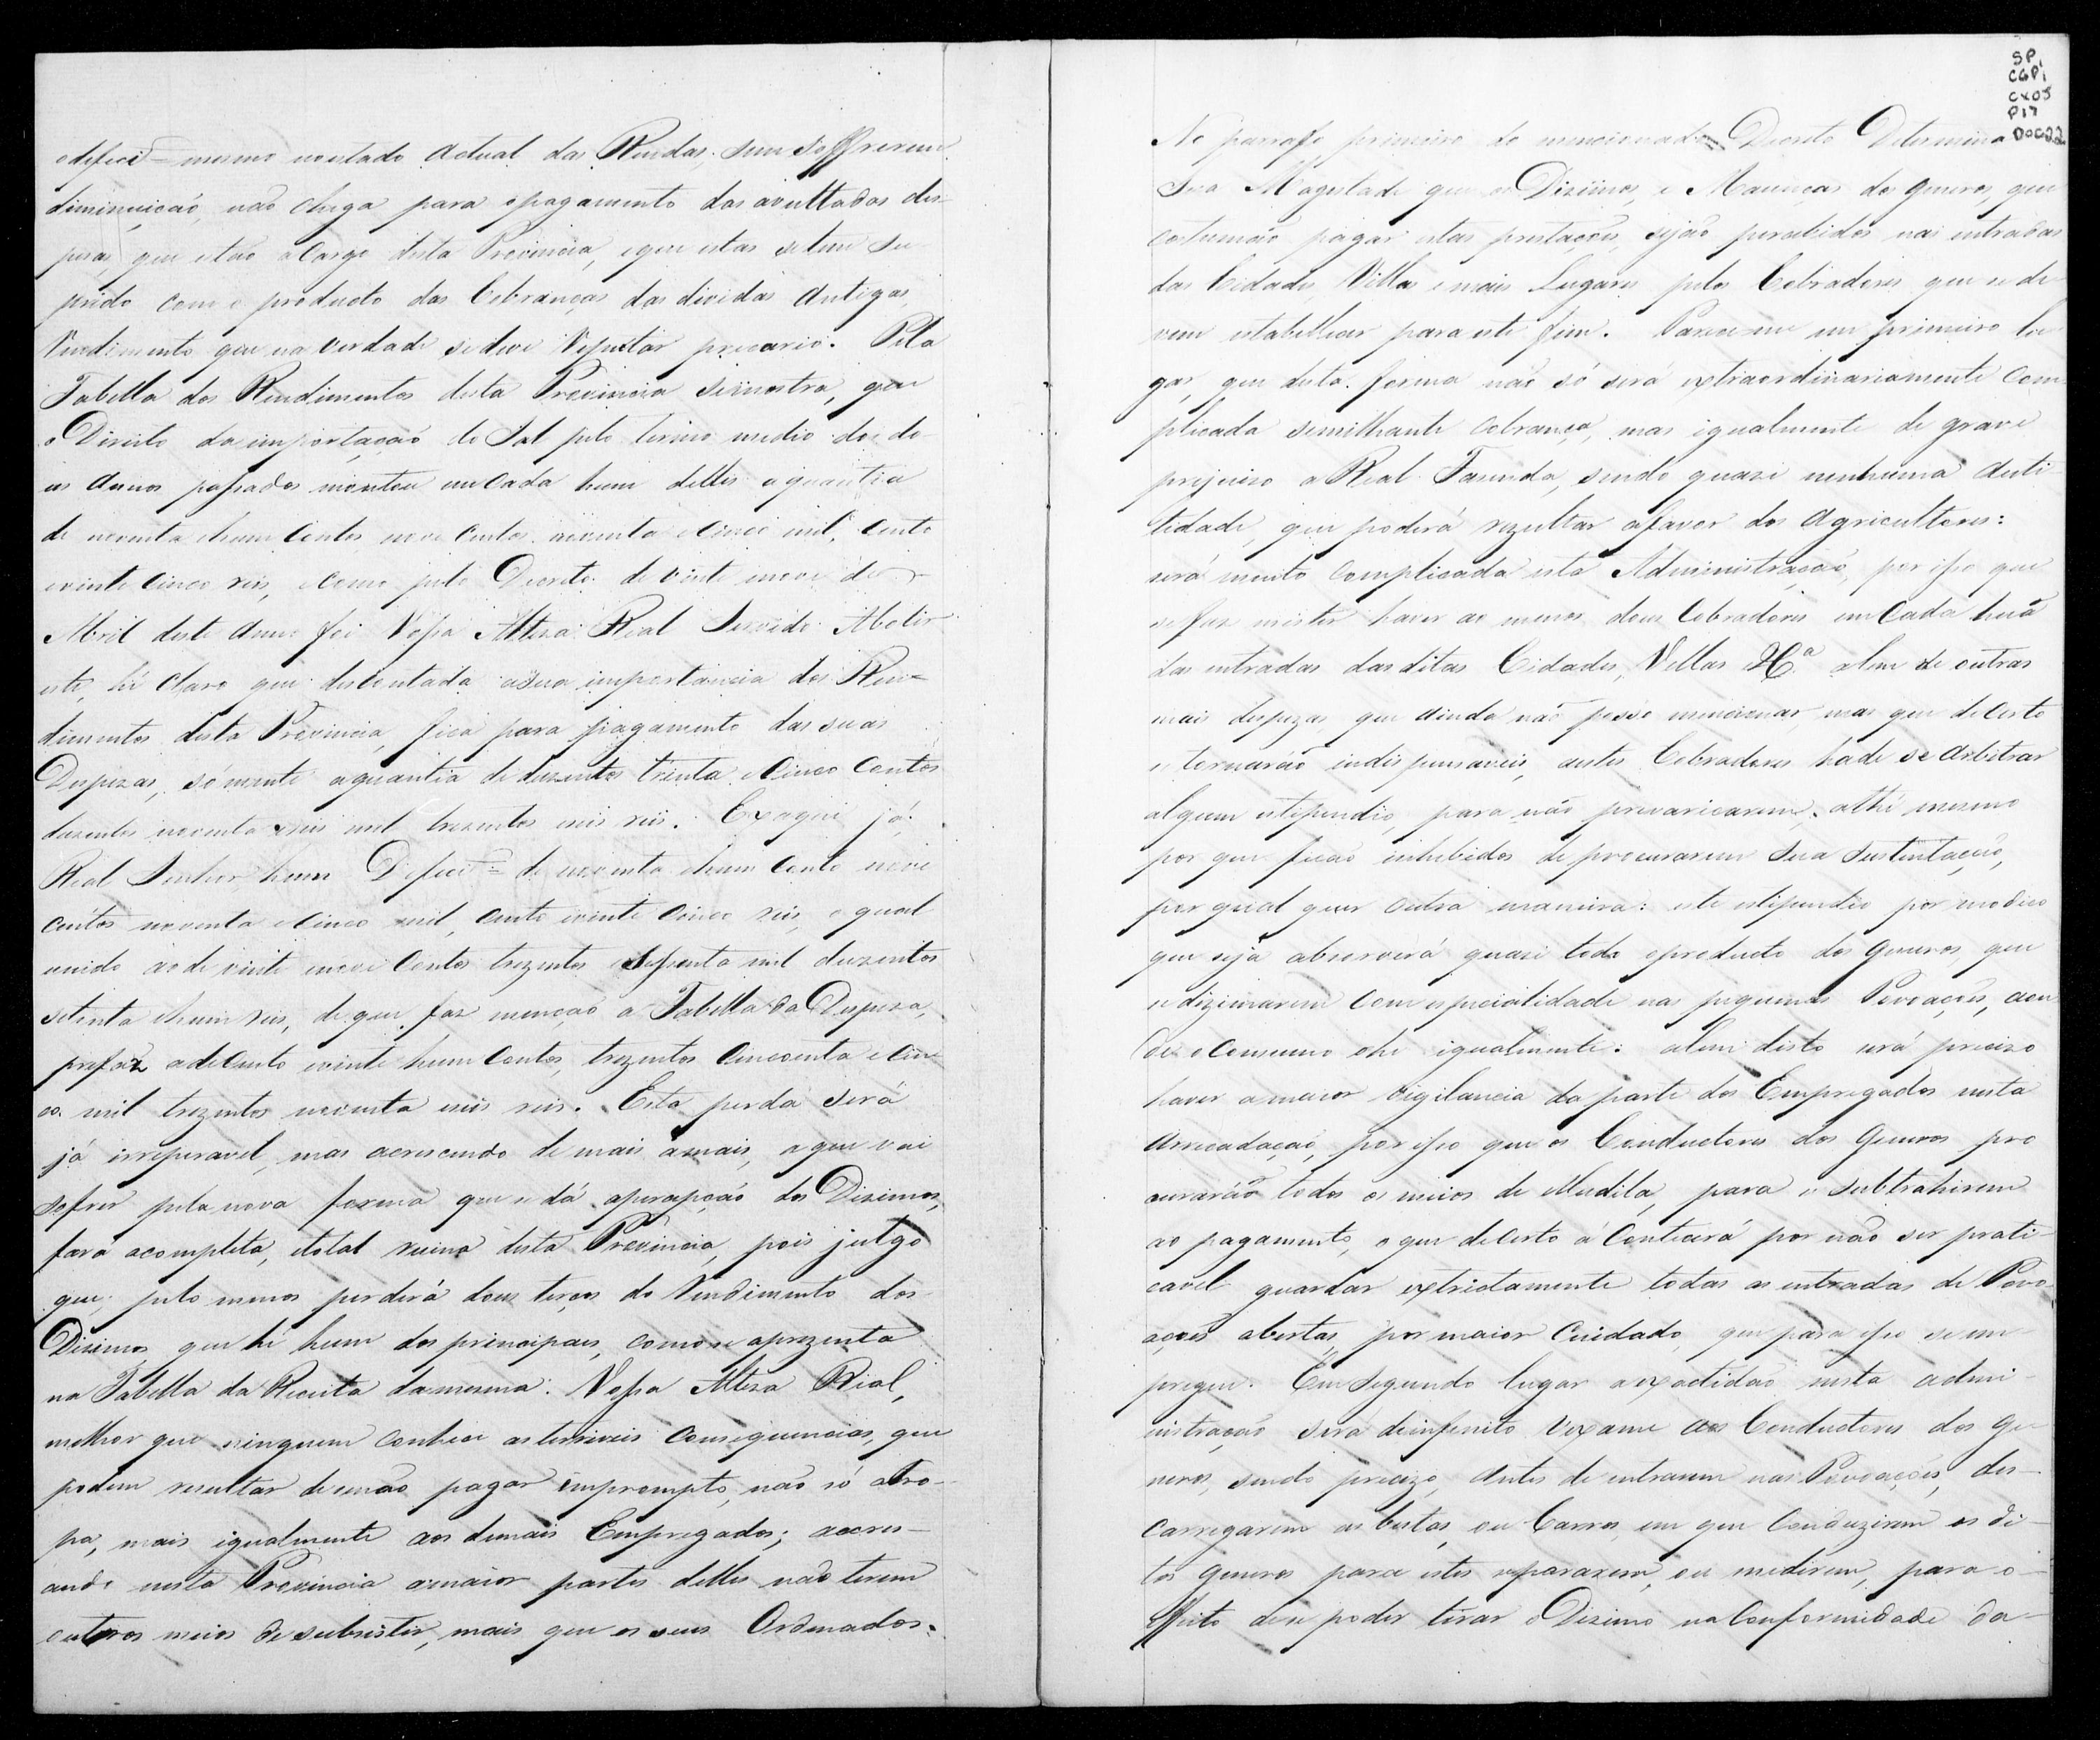 odefeci= mesmo noestado actual das Rendas, sem soffrerem
diminuição, não chega para opagamento das avultadas des-
pezas, que estão acargo desta Provincia, eque estas setem su-
prido com o producto das Cobranças das dividas antigas,
Rendimento que na verdade sedeve Reputar precario. Pela
Tabella dos Rendimentos desta Provincia semostra, que
o Direito da importação do Sal pelo termo medio dos do-
us annos passados montou emCada hum delles aquantia
de noventa ehum Contos nove Centos noventa eCinco mil, Cento
evinte Cinco reis, eComo pelo Decreto de vinte enove de
Abril deste anno foi Vossa Alteza Real Servido Abolir
este, hé Claro que descontada asua importancia dos Ren=
dimentos desta Provincia, fica para pagamento das suas
Despezas, sómente aquantia de duzentos trinta eCinco Contos
duzentos noventa eseis mil trezentos eseis reis. Exaqui já,
Real Senhor hum Defeci= de noventa ehum Conto nove
centos noventa eCinco mil, Cento evinte Cinco reis, o qual
unido aode vinte enove Contos trezentos esessenta mil duzentos
setenta ehum reis, de que faz menção a Tabella da Despeza,
prefaz adeCento evinte hum Contos, trezentos Cincoenta eCin-
co mil trezentos noventa eseis reis. Esta perda será
já irreparavel, mas acrescendo de mais amais, aque vai
sofrer pela nova forma que se dá apercepção dos Dizimos,
fará acompleta, etotal ruina desta Provincia, pois julgo
que pelo menos perderá dous terços do Rendimento dos
Dizimos, que hé hum dos principaes, como se aprezenta
na Tabella da Receita damesma. Vossa Alteza Real,
melhor que ninguem Conhece asterriveis Consequencias, que
podem resultar de senão pagar empromepto, não só atro-
pa, mais igualmente aos demais Empregados; acres-
cendo nesta Provincia amaior partes delles não terem
outros meios de subsistir, mais que os seus Ordenados.
No parrafo primeiro do mencionado Decreto Determina
Sua Magestade que os Dizimos, e Maunças dos generos, que
costumão pagar estas prestações, sejão percebidos nas entradas
das Cidades, Villas e mais Lugares pelos Cobradores que se de-
vem estabellecer para este fim. Parece-me em primeiro lu-
gar, que desta forma não só será extraordinariamente Com-
plicada semilhante Cobrança, mas igualmente de grave
prejuizo a Real Fazenda, sendo quazi nenhuma auti-
lidade, que poderá rezultar afavor dos Agricultores:
será muito Complicada esta Administração, por isso que
se faz mister haver ao menos dous Cobradores emCada huã
das entradas dasditas Cidades, Villas &.ª alem de outras
mais despezas, que ainda não posso mencionar mas que deCerto
se tornarão indispensaveis, aestes Cobradores hade se arbitrar
algum estipendio, para não prevaricarem, athé mesmo
por que ficão inhibidos de procurarem sua sustentação,
por qual quer outra maneira: este estipendio por modico
que seja absorverá quazi todo oproducto dos generos, que
se dizimarem Com especialidade nas pequenas Povoações, aon-
de oConsumo ohé igualmente: alem disto será precizo
haver amaior vigilancia da parte dos Empregados nesta
arrecadação, por isso que os Conductores dos Generos pro
curarão todos os meios de illudila, para se subtrahirem
ao pagamento, o que deCerto aConteCerá por não ser prati-
cavel guardar extrictamente todas as entradas de Povo-
ações abertas, por maior Cuidado, que para isso se em
pregue. Em segundo lugar a exactidão nesta admi-
nistração será deinfenito Vexame aos Conductores dos Ge-
neros, sendo precizo, antes de entrarem nas Povoações, des-
carregarem as bestas, ou Carros, em que Conduzirem os di-
tos generos para estes separarem, ou medirem, para o
effeito dese poder tirar o Dizimo na Conformidade da
SP,
CGPi
Cx05
P17
DOC22